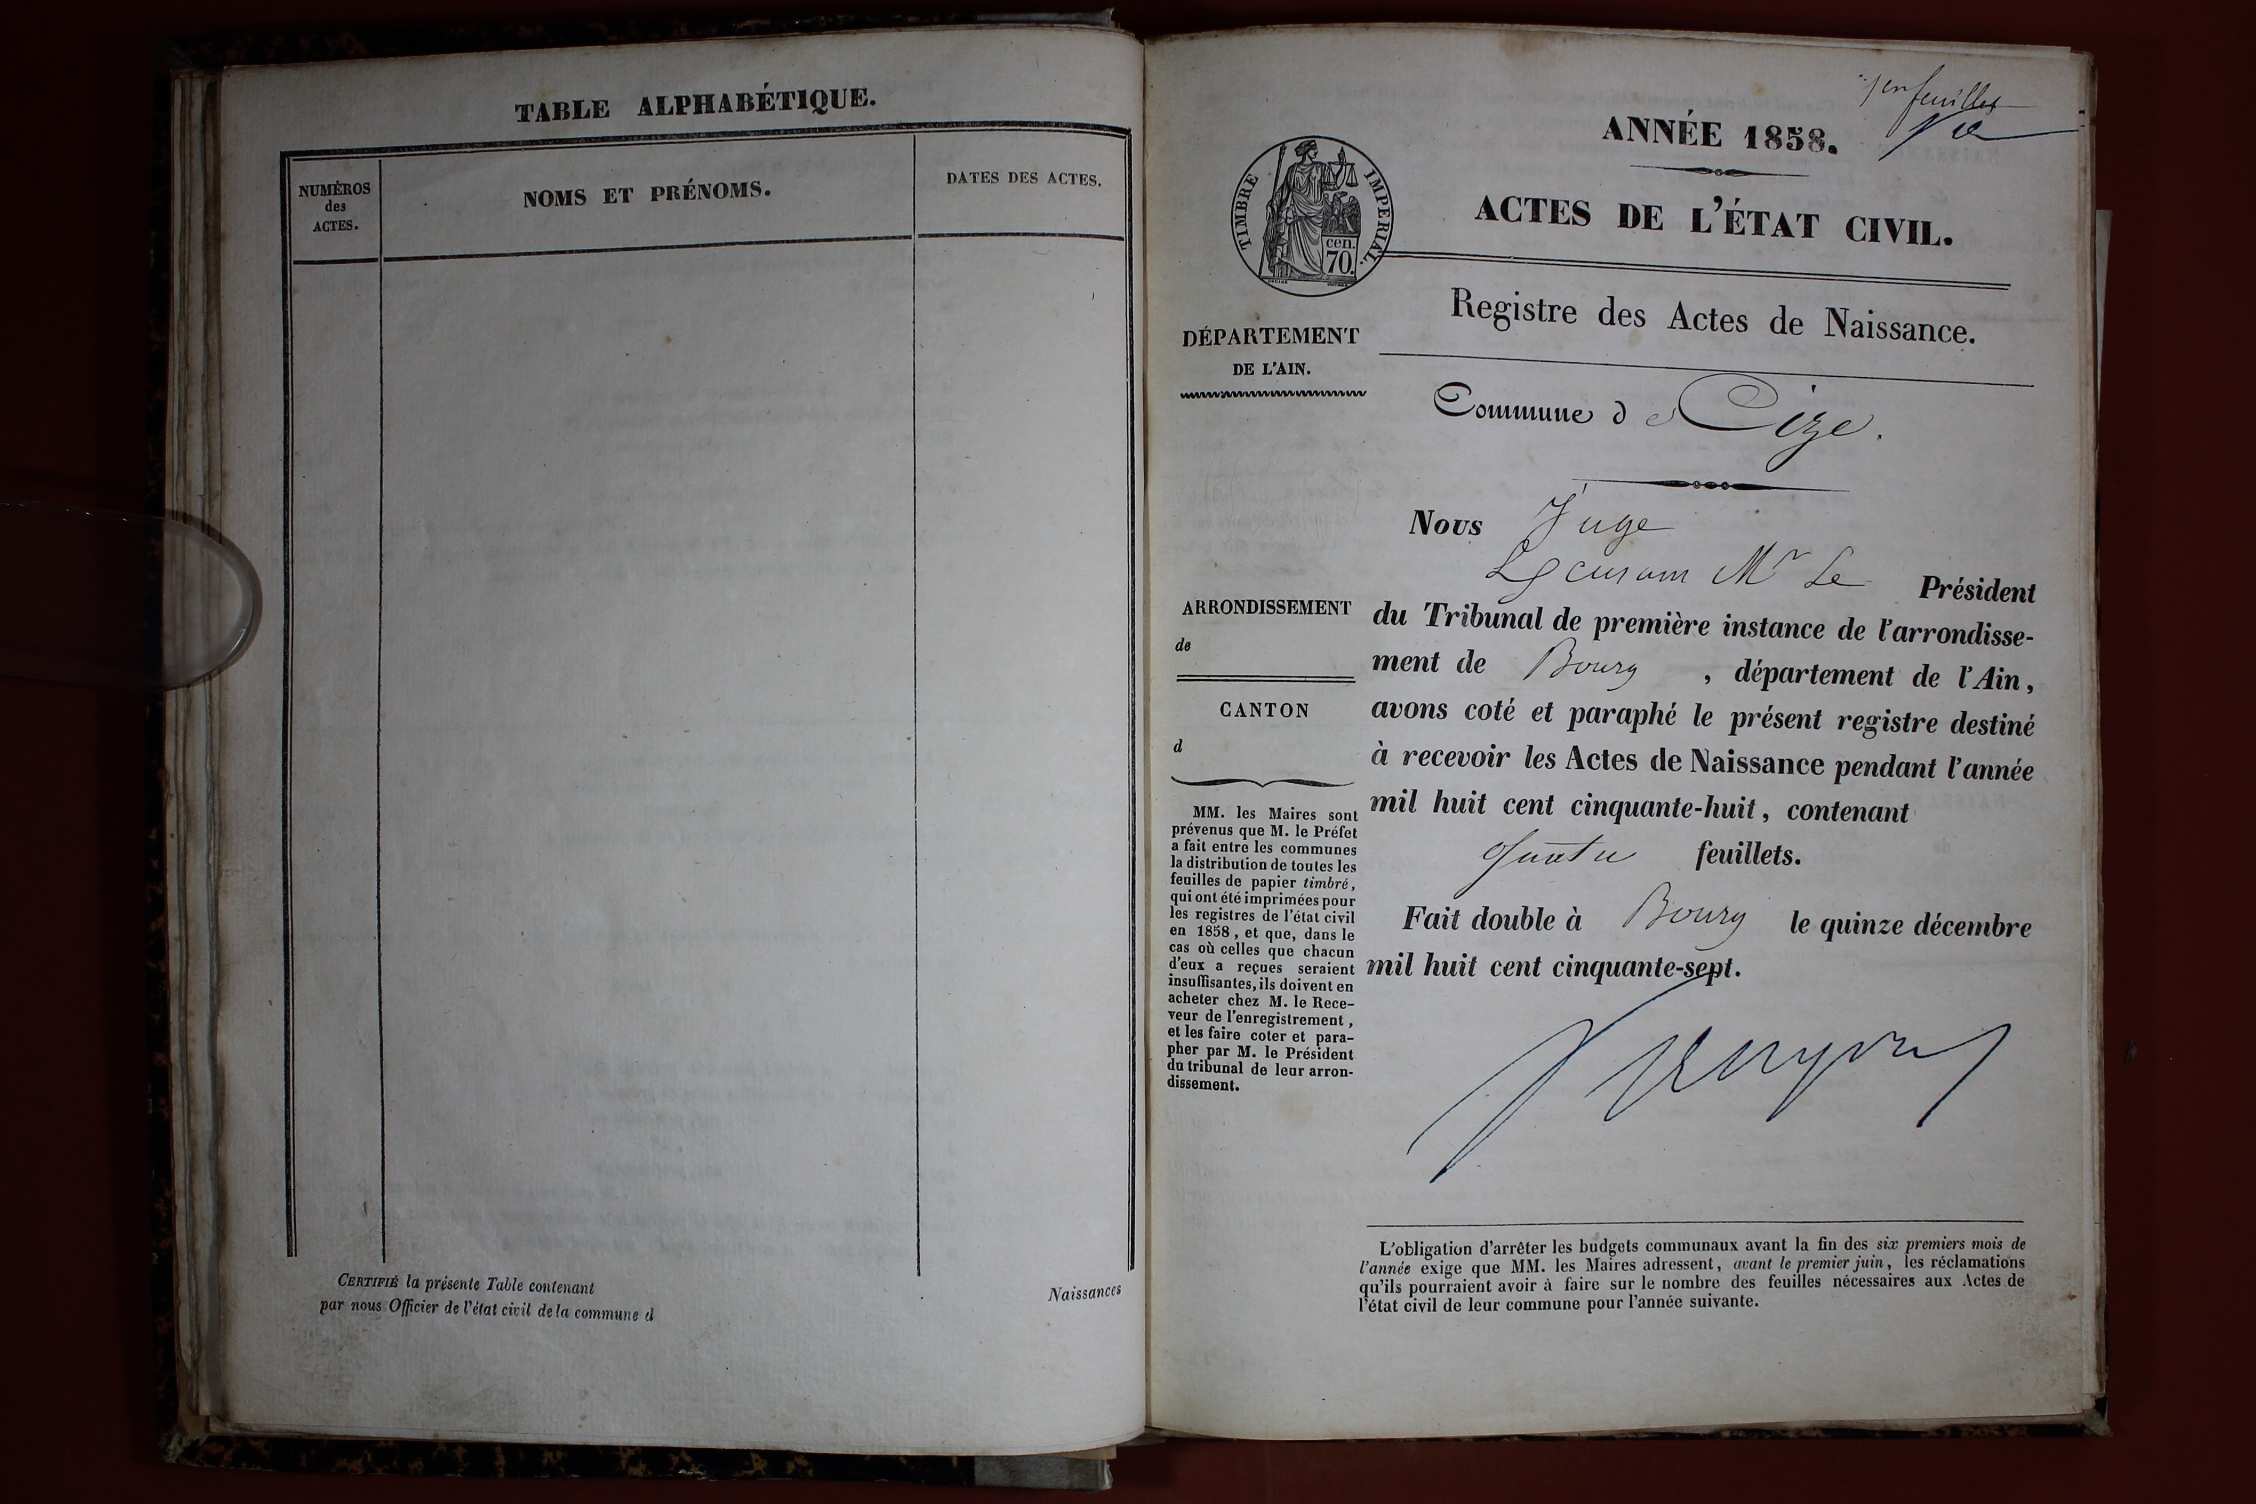 TABLE ALPHABÉTIQUE.
NUMÉROS
des
ACTES.
NOMS ET PRÉNOMS.
DATES DES ACTES.
CERTIFIÉ la présente Table contenant
Naissances
par nous Officier de l'état civil de la commune d
feuillet
ANNÉE 1858.
ACTES DE L'ÉTAT CIVIL.
TIMBRE IMPERIAL.
cen.
70.
Registre des Actes de Naissance.
DÉPARTEMENT
DE L'AIN.
Commune de Cize.
Nous Juge
Mr Le Président
ARRONDISSEMENT
de
CANTON
d
du Tribunal de première instance de l'arrondisse-
ment de Bourg, département de l'Ain,
avons coté et paraphé le présent registre destiné
à recevoir les Actes de Naissance pendant l'année
mil huit cent cinquante-huit, contenant
quatre feuillets.
Fait double à Bourg le quinze décembre
mil huit cent cinquante-sept.
MM. les Maires sont
prévenus que M. le Préfet
a fait entre les communes
la distribution de toutes les
feuilles de papier timbré,
qui ont été imprimées pour
les registres de l'état civil
en 1858, et que, dans le
cas où celles que chacun
d'eux a reçues seraient
insuffisantes, ils doivent en
acheter chez M. le Rece-
veur de l'enregistrement,
et les faire coter et para-
pher par M. le Président
du tribunal de leur arron-
dissement.
L'obligation d'arrêter les budgets communaux avant la fin des six premiers mois de
l'année exige que MM. les Maires adressent, avant le premier juin, les réclamations
qu'ils pourraient avoir à faire sur le nombre des feuilles nécessaires aux Actes de
l'état civil de leur commune pour l'année suivante.